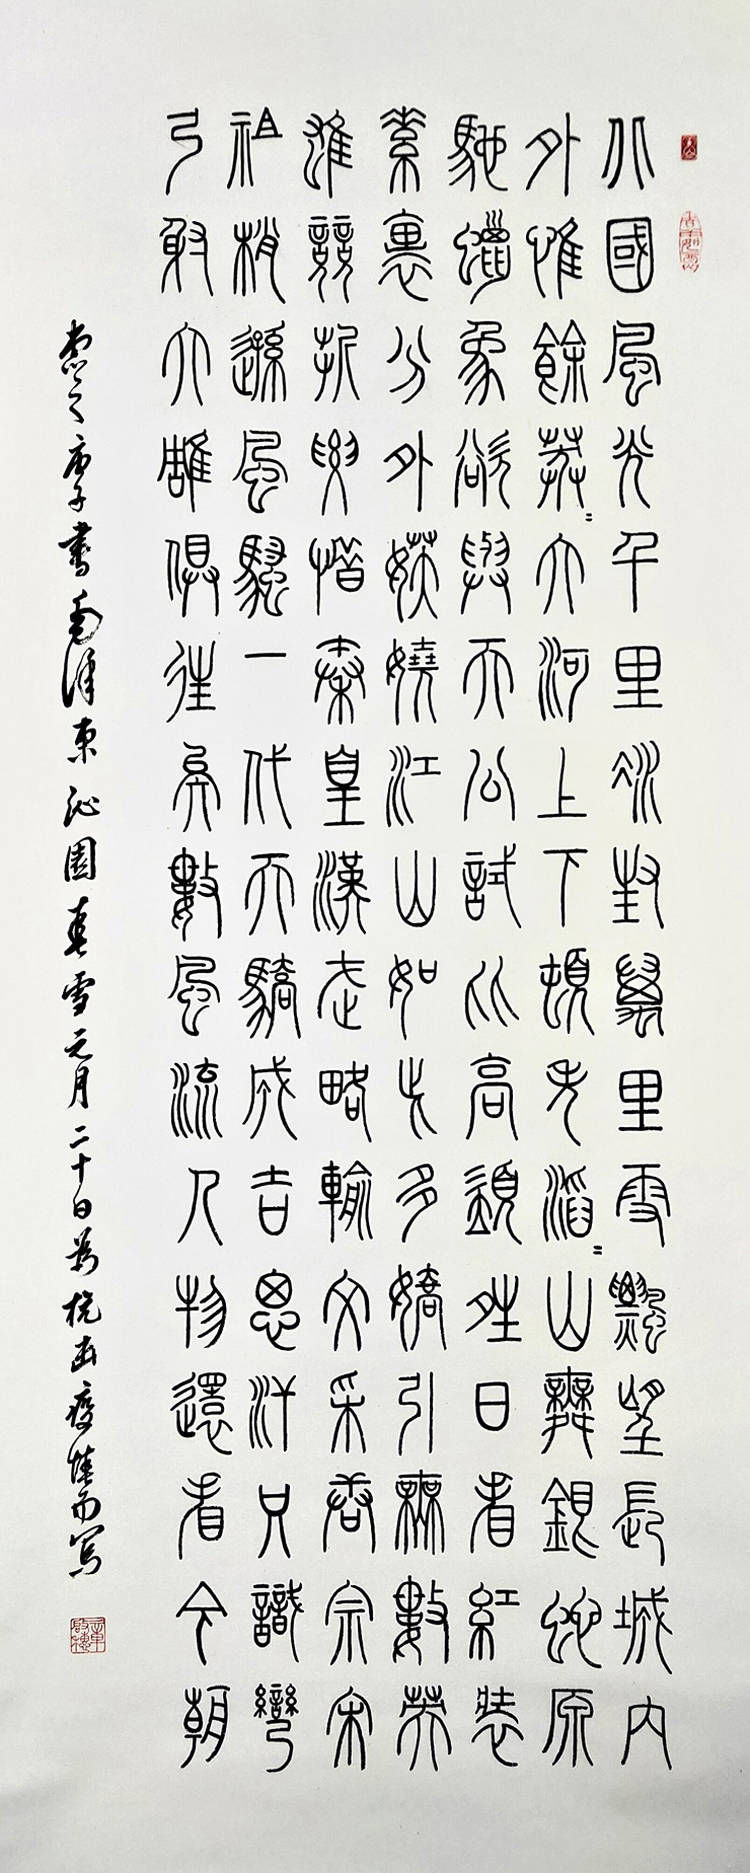 北國風光千里冰封萬里雪飄望長城內
外惟餘莽〻大河上下頓失滔〻山舞銀蛇原
馳蠟象欲與天公試比高須晴日看紅裝
素裹分外妖嬈江山如此多嬌引無數英
雄競折腰惜秦皇漢武略輸文采唐宗宋
祖稍遜風騷一代天驕成吉思汗只識彎
弓射大雕俱往矣數風流人物還看今朝
之庚子書毛澤東沁園春雪元月二十日為抗击疫情而寫